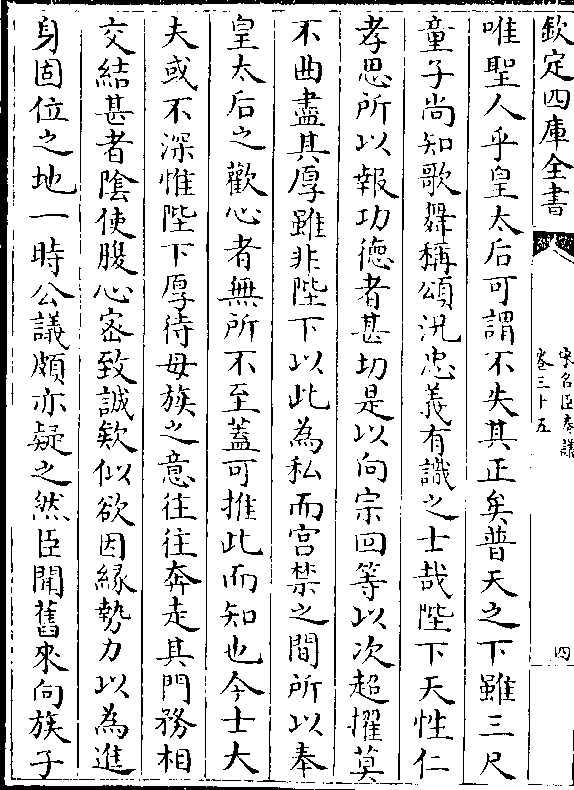 欽定四庫全書
宋名臣奏議
卷三十五
四
唯聖人乎皇太后可謂不失其正矣普天之下雖三尺
童子尚知歌舞稱頌況忠義有識之士哉陛下天性仁
孝思所以報功德者甚切是以向宗回等以次超擢莫
不曲盡其厚雖非陛下以此為私而宫禁之間所以奉
皇太后之歡心者無所不至蓋可推此而知也今士大
夫或不深惟陛下厚待母族之意往往奔走其門務相
交結甚者陰使腹心密致誠欵似欲因緣勢力以為進
身固位之地一時公議頗亦疑之然臣聞舊來向族子